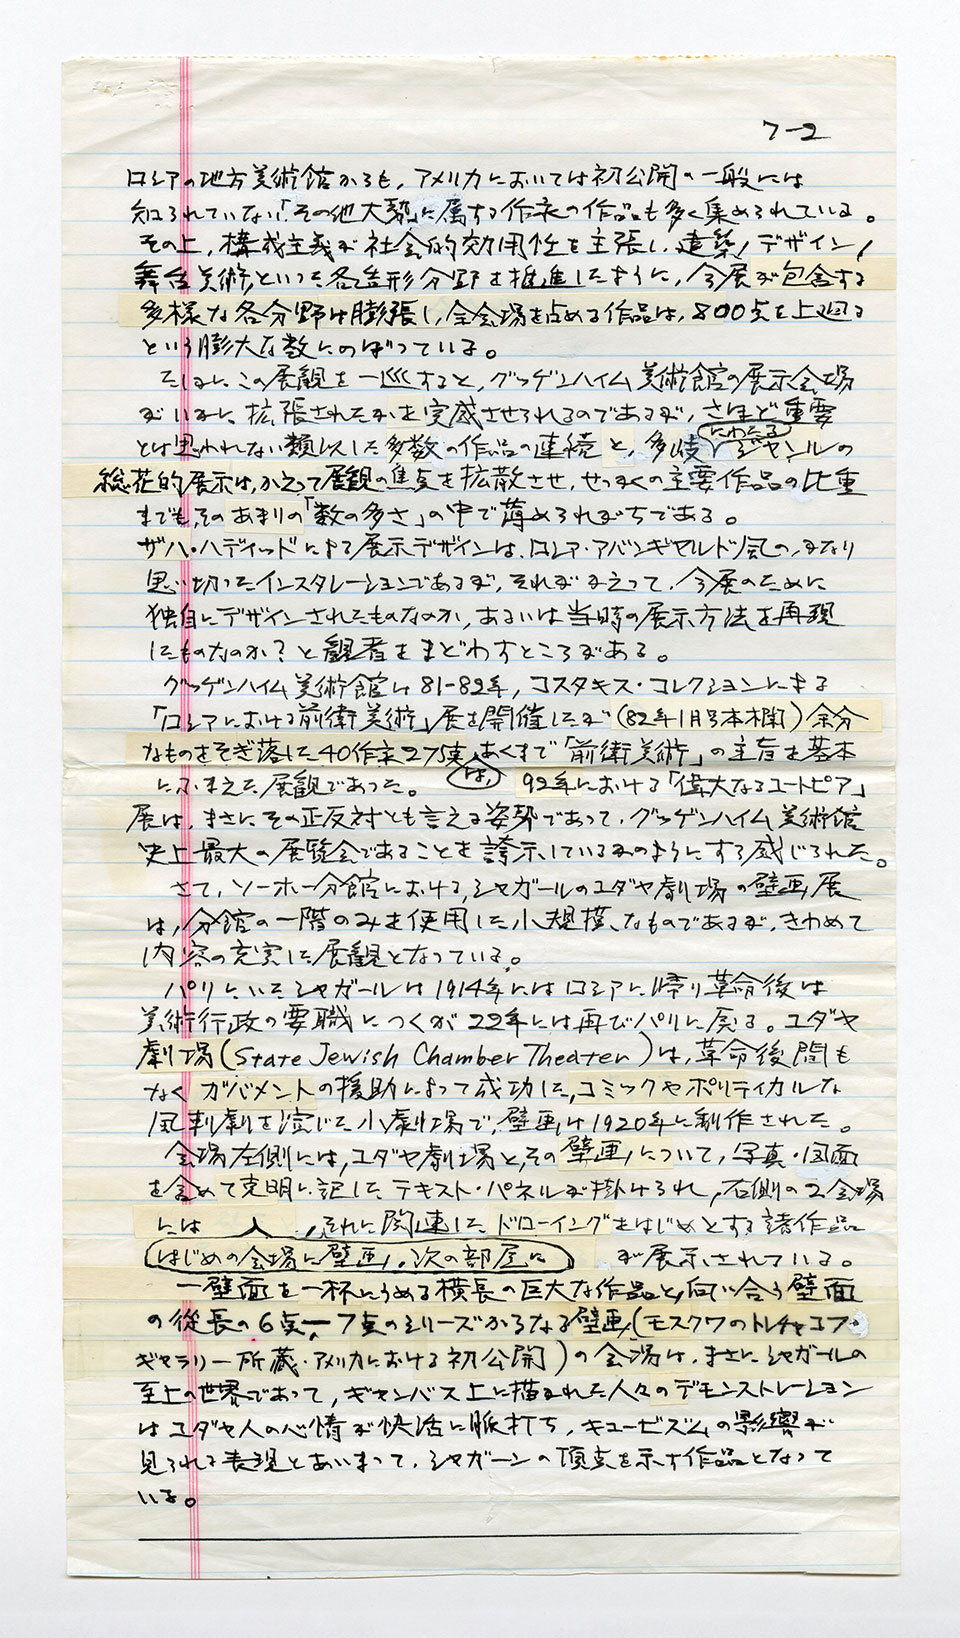 7-2
ロシアの地方美術館からも,アメリカにおいては初公開の一般には
知られていない「その他大勢」に属する作家の作品も多く集められている。
その上,構成主義が社会的効用性を主張し,建築,デザイン,
舞台美術,といった各造形分野を推進したように,今展が包含する
多様な各分野は膨張し,全会場を占める作品は,800点を上廻る
という膨大な数にのぼっている。
たしかにこの展観を一巡すると,グッゲンハイム美術館の展示会場
がいかに拡張されたかを実感させられるのであるが,さほど重要
とは思われない類似した多数の作品の連続と,多岐にわたるジャンルの
総花的展示は,かえって展観の焦点を拡散させ,せっかくの主要作品の比重
までも,そのあまりの「数の多さ」の中で薄められがちである。
ザハ・ハディッドによる展示デザインは,ロシア・アバンギャルド風の,かなり
思い切ったインスタレーションであるが,それがかえって,今展のために
独自にデザインされたものなのか,あるいは当時の展示方法を再現
したものなのか?と観者をまどわすところがある。
グッゲンハイム美術館は81-82年,コスタキス・コレクションによる
「ロシアにおける前衛美術」展を開催したが(82年1月号本欄)余分
なものをそぎ落した40作家275点は,あくまで「前衛美術」の主旨を基本
にふまえた展観であった。 92年における「偉大なるユートピア」
展は,まさにその正反対とも言える姿勢であって,グッゲンハイム美術館
史上最大の展覧会であることを誇示しているかのようにすら感じられた。
さて,ソーホー分館における,シャガールのユダヤ劇場の壁画展
は,分館の一階のみを使用した小規模なものであるが,きわめて
内容の充実した展観となっている。
パリにいたシャガールは1914年にはロシアに帰り革命後は
美術行政の要職につくが22年には再びパリに戻る。ユダヤ
劇場(State Jewish Chamber Theater)は,革命後間も
なくガバメントの援助によって成功した,コミックやポリティカルな
風刺劇を演じた小劇場で,壁画は1920年に制作された。
会場左側には,ユダヤ劇場と,その壁画について,写真・図面
を含めて克明に記したテキスト・パネルが掛けられ,右側の2会場
には ,それに関連したドローイングをはじめとする諸作品
はじめの会場に壁画,次の部屋に が展示されている。
一壁面を一杯にうめる横長の巨大な作品と,向い合う壁面
の従長の6点,7点のシリーズからなる壁画(モスクワのトレチャコフ・
ギャラリー所蔵・アメリカにおける初公開)の会場は,まさにシャガールの
至上の世界であって,ギャンバス上に描かれた人々のデモンストレーション
はユダヤ人の心情が快活に脈打ち,キュービズムの影響が
見られる表現とあいまって,シャガーンの頂点を示す作品となって
いる。